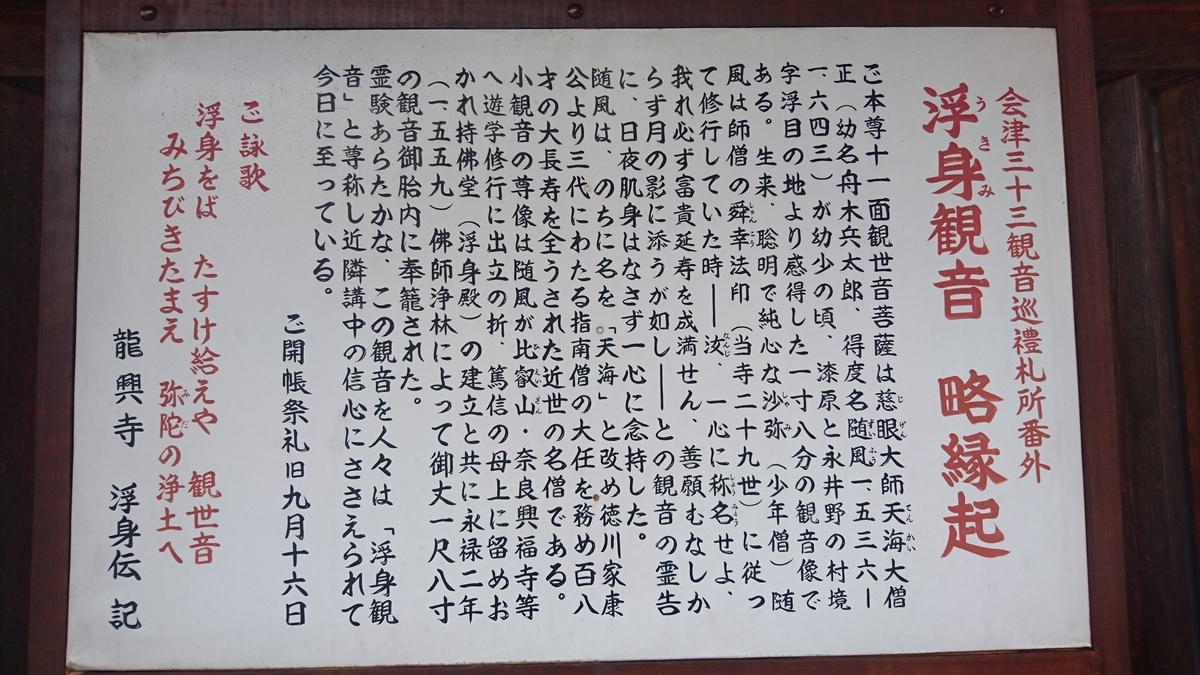 会津三十三観音巡禮札所番外
浮身観音　略縁起
ご本尊十一面観世音菩薩は慈眼大師天海大僧
正（幼名舟木兵太郎、得度名随風一五三六ー
一六四三）が幼少の頃、漆原と永井野の村境
字浮目の地より感得した一寸八分の観音像で
ある。生来、聡明で純心な沙弥（少年僧）随
風は師僧の舜幸法印（当寺二十九世）に従っ
て修行していた時――汝、一心に称名せよ、
我れ必ず富貴延寿を成満せん、善願むなしか
らず月の影に添うが如し――との観音の霊告
に、日夜肌身はなさず一心に念持した。
随風は、のちに名を「天海」と改め徳川家康
公より三代にわたる指南僧の大任を務め百八
才の大長寿を全うされた近世の名僧である。
小観音の尊像は随風が比叡山・奈良興福寺等
へ遊学修行に出立の折、篤信の母上に留めお
かれ持佛堂（浮身殿）の建立と共に永禄二年
（一五五九）佛師浄林によって御丈一尺八寸
の観音御胎内に奉籠された。
霊験あらたかな、この観音を人々は「浮身観
音」と尊称し近隣講中の信心にささえられて
今日に至っている。
ご開帳祭礼旧九月十六日
ご詠歌
浮身をば　たすけ給えや　観世音
みちびきたまえ　弥陀の浄土へ
龍興寺　浮身伝記